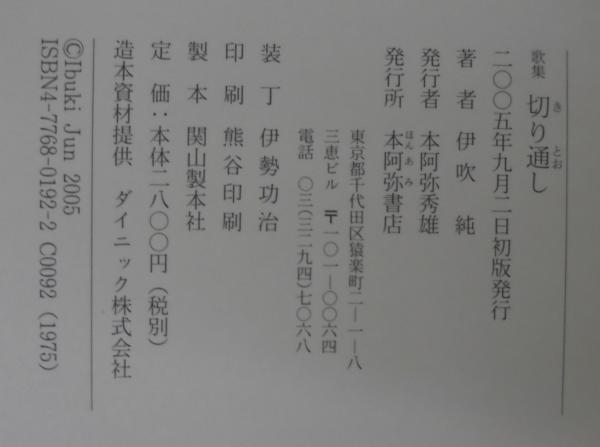 歌集 切り通し
二〇〇五年九月二日初版発行
著者 伊吹 純
発行者 本阿弥秀雄
発行所 本阿弥書店
東京都千代田区猿楽町二―一―八
三恵ビル 〒一〇一―〇〇六四
電話 〇三(三二九四)七〇六八
装丁 伊勢功治
印刷 熊谷印刷
製本 関山製本社
定価：本体二八〇〇円（税別）
造本資材提供 ダイニック株式会社
©Ibuki Jun 2005
ISBN4-7768-0192-2 C0092 (1975)